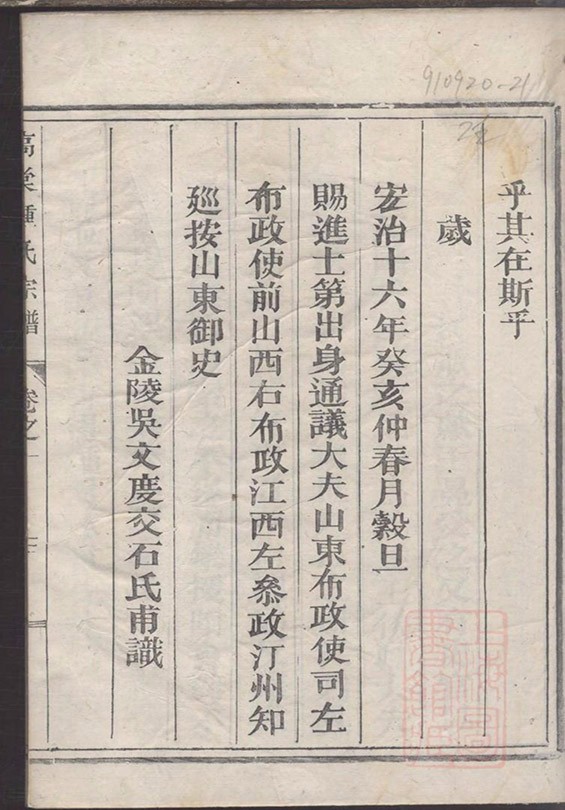 910920-21
乎其在斯乎
歲
宏治十六年癸亥仲春月穀旦
賜進士第出身通議大夫山東布政使司左
布政使前山西右布政江西左叅政汀州知
廵按山東御史
金陵吳文度交石氏甫識
氏宗譜
卷之一